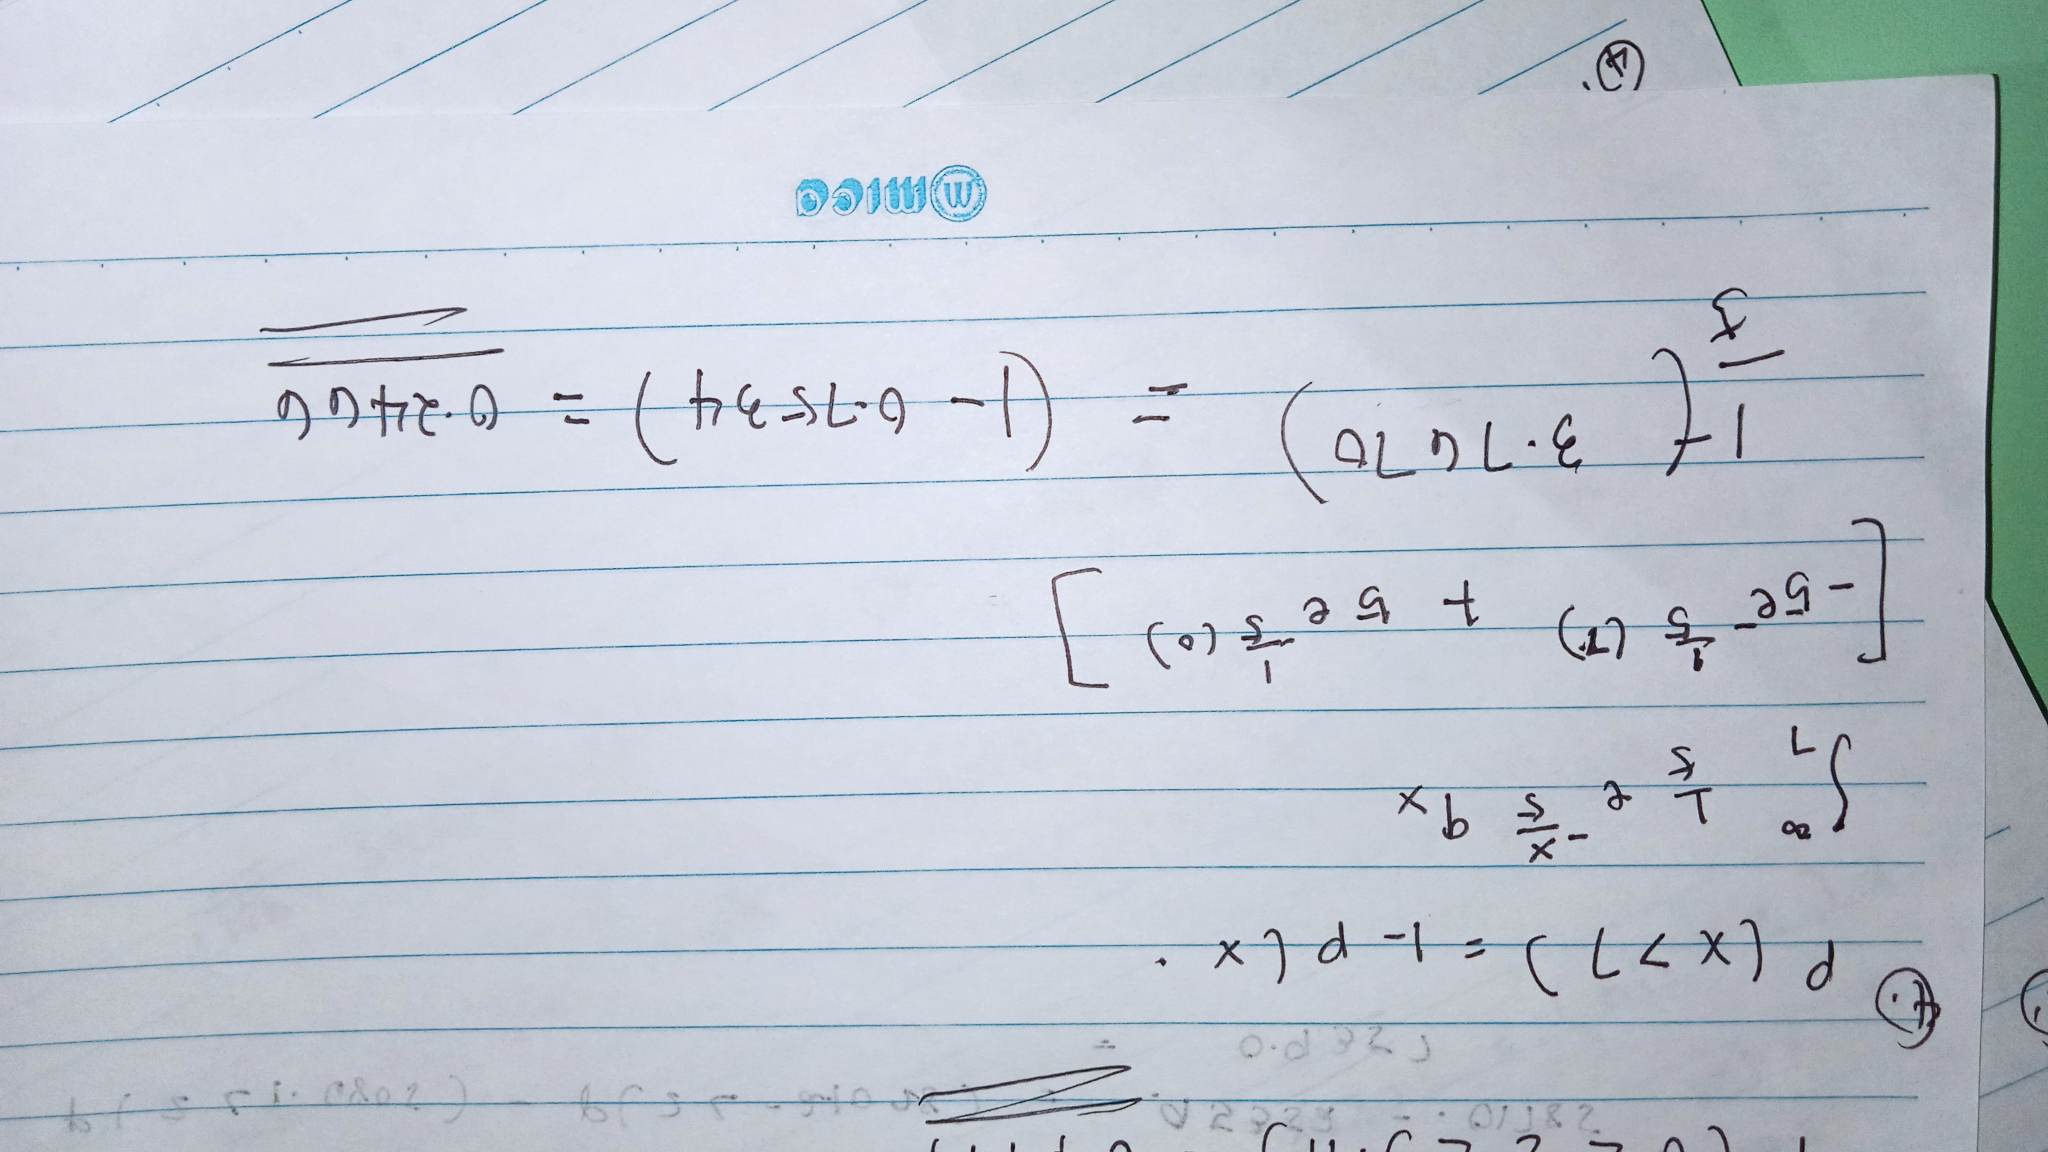 4.
P(x>7) = 1- P(x .
∫₇^∞ 1/5 e^(-x/5) dx
[-5e^(-1/5 (7)) + 5e^(-1/5 (0))]
1/5 (3.7670) = (1- 0.7534) = 0.2466
mica
4.